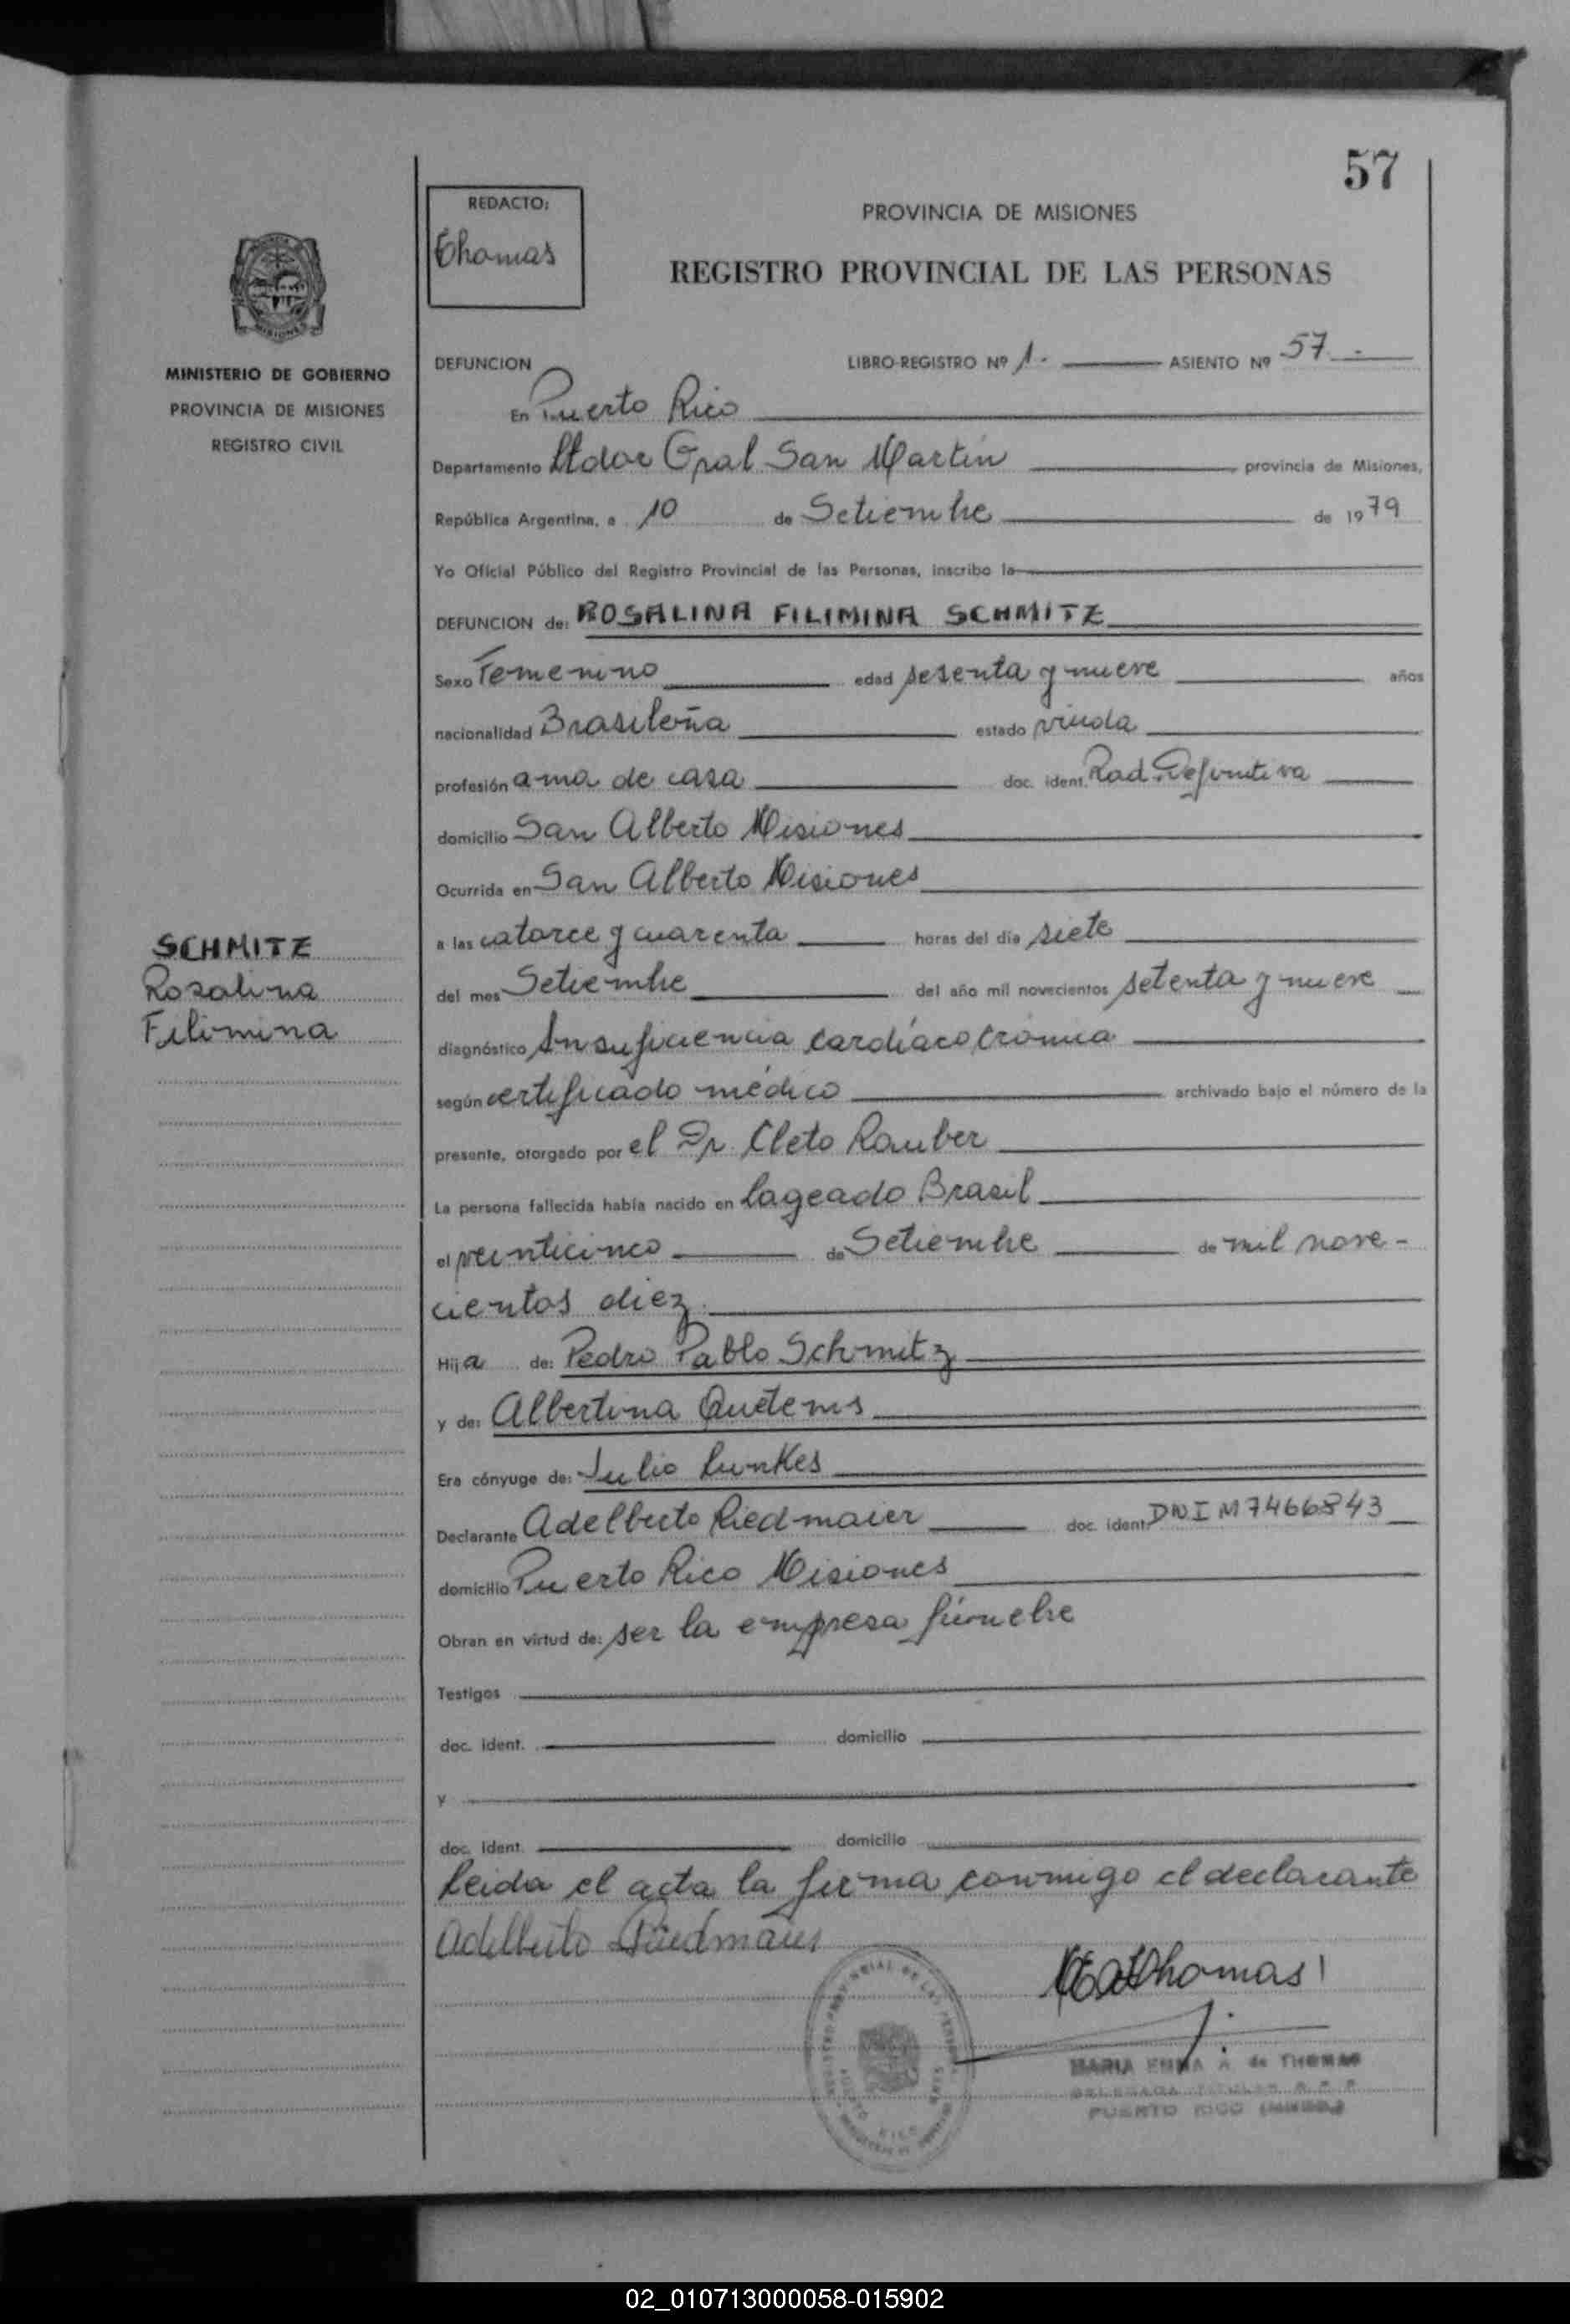 57
REDACTO:
Thomas
PROVINCIA DE MISIONES
REGISTRO PROVINCIAL DE LAS PERSONAS
MINISTERIO DE GOBIERNO
PROVINCIA DE MISIONES
REGISTRO CIVIL
DEFUNCION LIBRO-REGISTRO Nº 1.- ASIENTO Nº 57.-
En Puerto Rico
Departamento Ltdor Gral San Martín provincia de Misiones,
República Argentina, a 10 de Setiembre de 1979
Yo Oficial Público del Registro Provincial de las Personas, inscribo la
DEFUNCION de: ROSALINA FILIMINA SCHMITZ
Sexo Femenino edad sesenta y nueve años
nacionalidad Brasileña estado viuda
profesión ama de casa doc. ident. Rad. Definitiva
domicilio San Alberto Misiones
Ocurrida en San Alberto Misiones
SCHMITZ
Rosalina
Filimina
a las catorce y cuarenta horas del día siete
del mes Setiembre del año mil novecientos setenta y nueve
diagnóstico Insuficiencia cardíaco crónica
según certificado médico archivado bajo el número de la
presente, otorgado por el Dr. Cleto Rauber
La persona fallecida había nacido en Lageado Brasil
el veinticinco de Setiembre de mil nove-
cientos diez.
Hija de: Pedro Pablo Schmitz
y de: Albertina Quetems
Era cónyuge de: Julio Lunkes
Declarante Adelberto Riedmaier doc. ident. DNI M7466843
domicilio Puerto Rico Misiones
Obran en virtud de: ser la empresa fúnebre
Testigos
doc. ident. domicilio
y
doc. ident. domicilio
Leida el acta la firma conmigo el declarante
Adelberto Riedmaier
Thomas
MARIA EMMA A. de THOMAS
DELEGADA TITULAR R. P. P.
PUERTO RICO
02_010713000058-015902